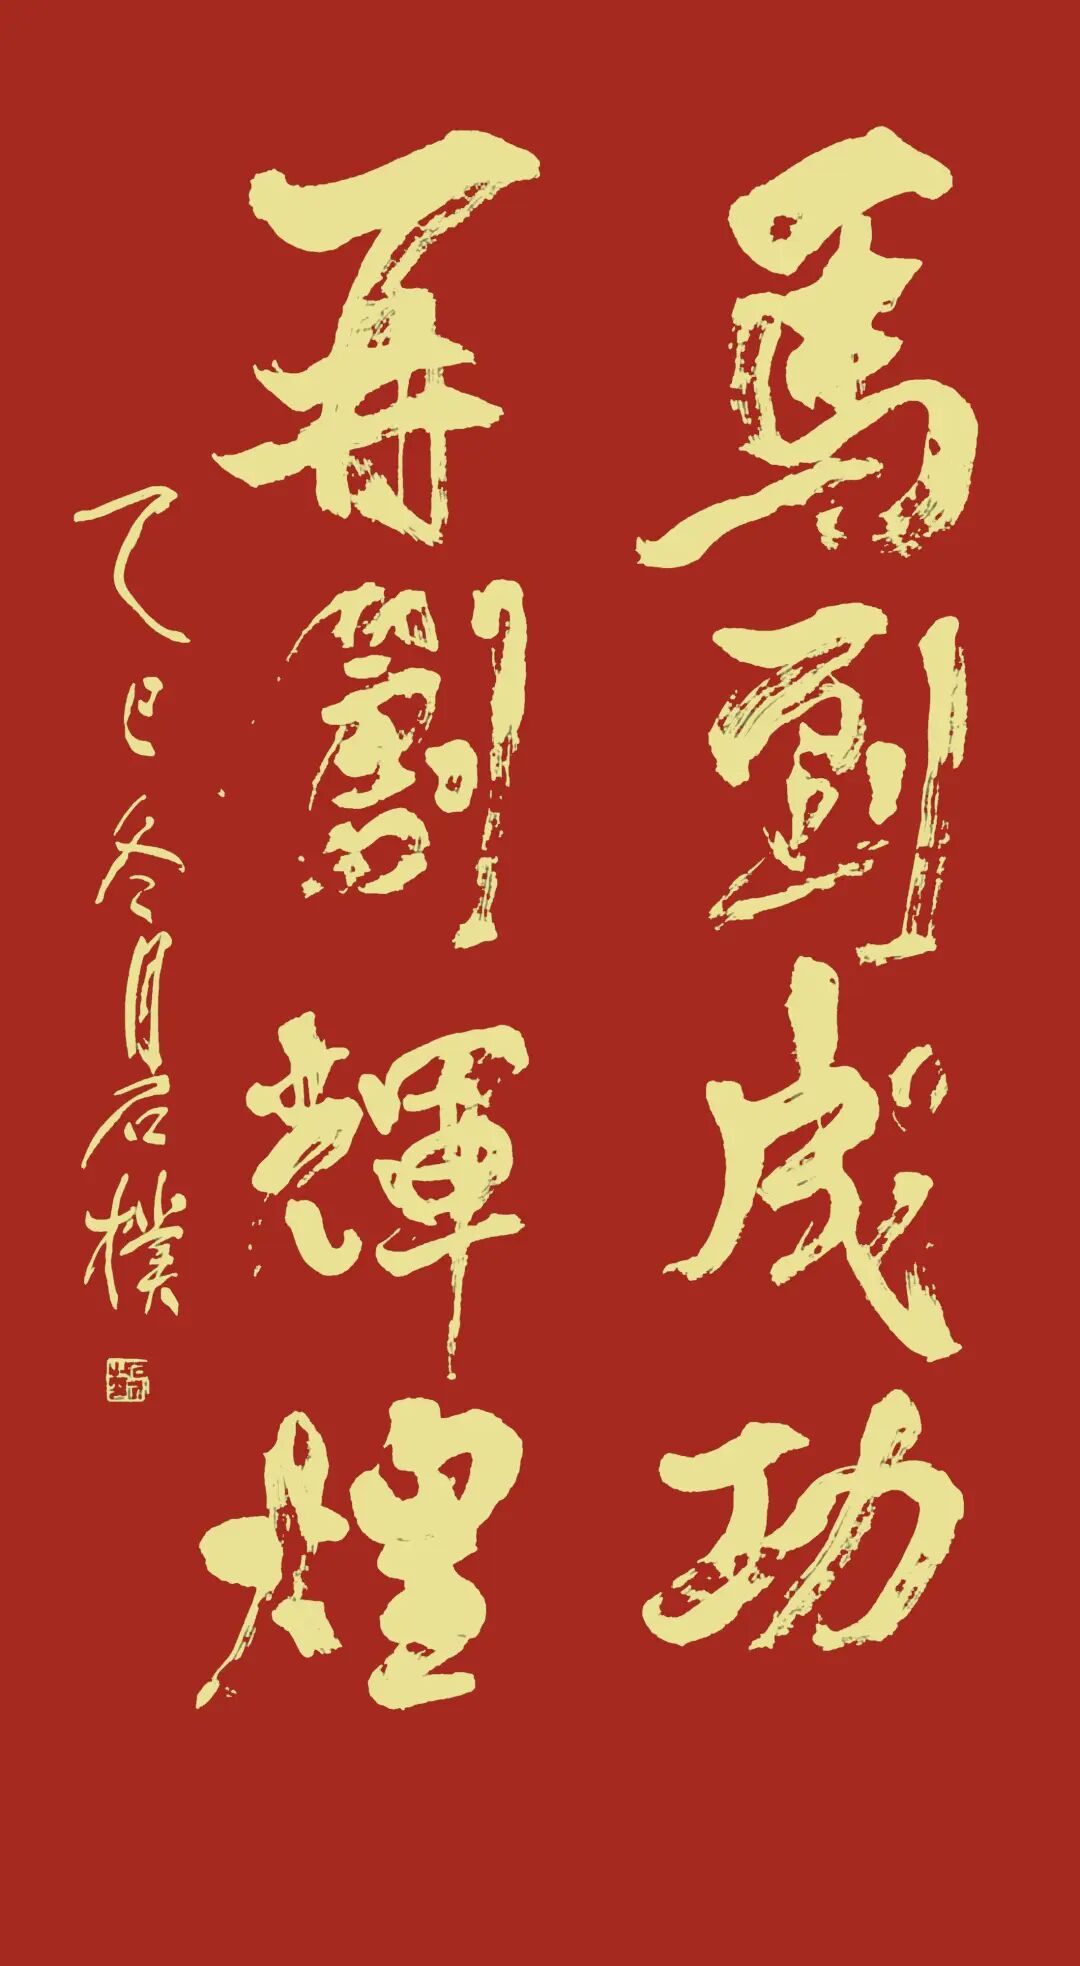 馬到成功
再創輝煌
乙巳冬月石樸